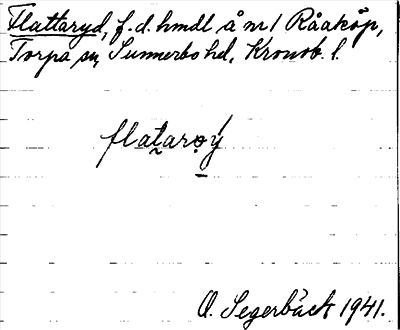 Flattaryd, f.d. hmdl å nr 1 Råaköp,
Torpa sn, Sunnerbo hd, Kronob. l.
flataroý
O. Segerbäck 1941.